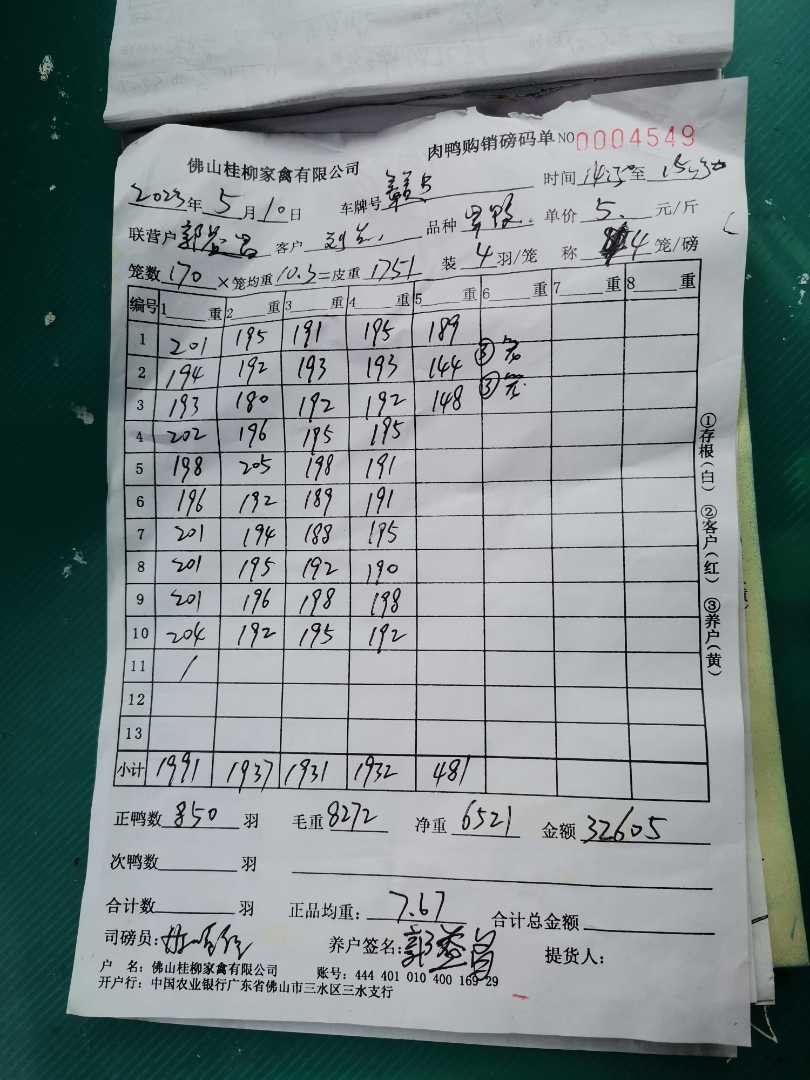 肉鸭购销磅码单 NO 0004549
佛山桂柳家禽有限公司
2023年 5月10日 车牌号 时间 至
联营户 郭 客户 刘 品种 单价 5. 元/斤
笼数 170 ×笼均重 10.3 =皮重 1751 装 4 羽/笼 称 4 笼/磅
编号 1 重 2 重 3 重 4 重 5 重 6 重 7 重 8 重
1 201 195 191 195 189
2 194 192 193 193 144 ③
3 193 180 192 192 148 ③
4 202 196 195 195
5 198 205 198 191
6 196 192 189 191
7 201 194 188 195
8 201 195 192 190
9 201 196 198 198
10 204 192 195 192
11 /
12
13
小计 1991 1937 1931 1932 481
正鸭数 850 羽 毛重 8272 净重 6521 金额 32605
次鸭数 羽
合计数 羽 正品均重: 7.67 合计总金额
司磅员: 养户签名: 郭 提货人:
户 名: 佛山桂柳家禽有限公司 账号: 444 401 010 400 169 29
开户行: 中国农业银行广东省佛山市三水区三水支行
①存根(白) ②客户(红) ③养户(黄)